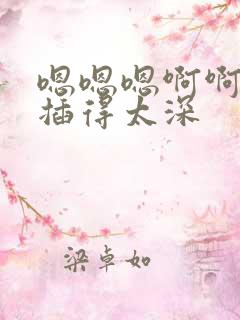 嗯嗯嗯啊啊
插得太深
梁卓如